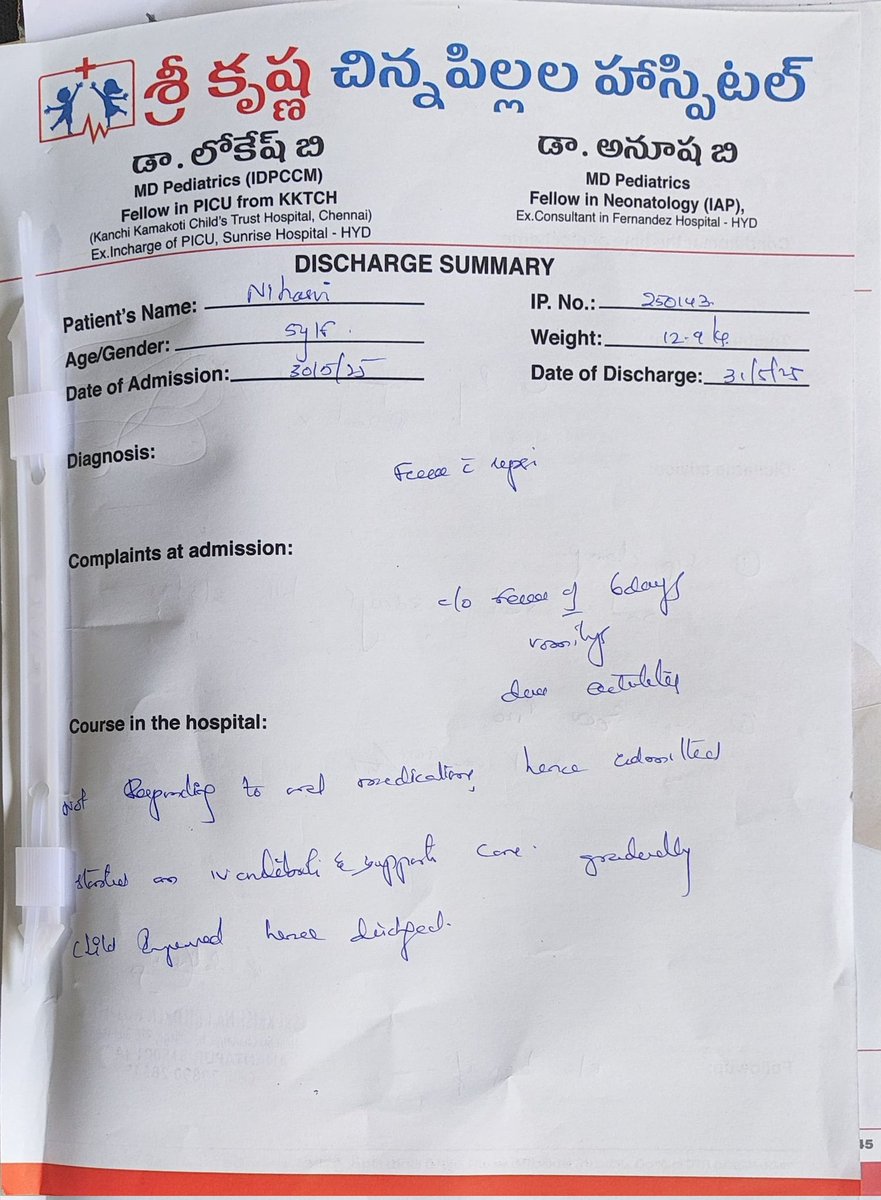 శ్రీ కృష్ణ చిన్నపిల్లల హాస్పిటల్
డా. లోకేష్ బి
MD Pediatrics (IDPCCM)
Fellow in PICU from KKTCH
(Kanchi Kamakoti Child's Trust Hospital, Chennai)
Ex.Incharge of PICU, Sunrise Hospital - HYD
డా. అనూష బి
MD Pediatrics
Fellow in Neonatology (IAP),
Ex.Consultant in Fernandez Hospital - HYD
DISCHARGE SUMMARY
Patient's Name:
IP. No.: 250143
Age/Gender: 5y/F
Weight: 12.9 kg
Date of Admission: 30/5/25
Date of Discharge: 31/5/25
Diagnosis:
Complaints at admission:
c/o of 6days
Course in the hospital:
not Responding to oral medications, hence admitted
started on IV & support care. gradually
child improved hence
45